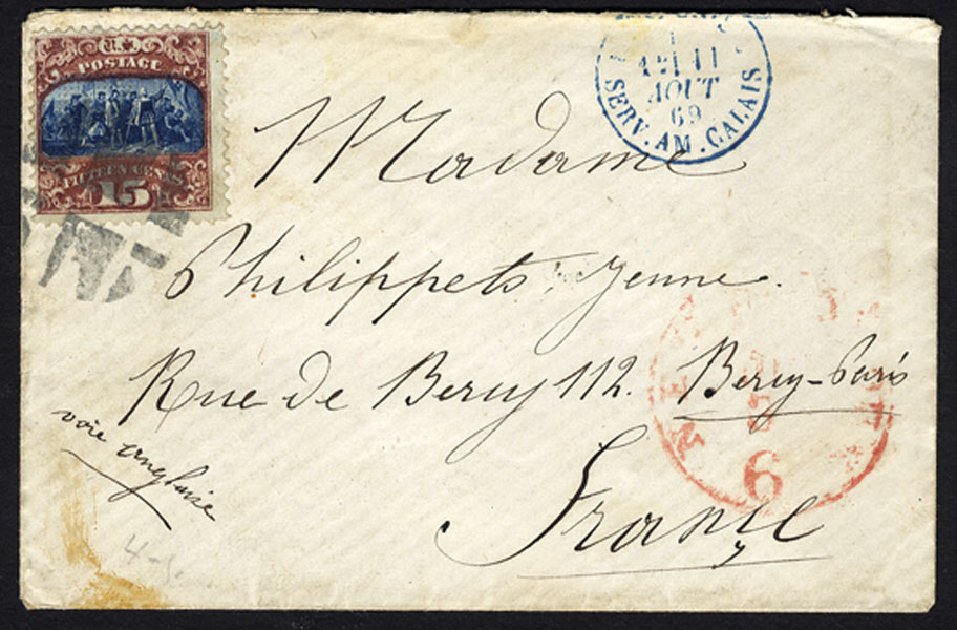 U.S.
POSTAGE
FIFTEEN CENTS
15
11
AOUT
69
SERV. AM. CALAIS
Madame
Philippets Jeune.
Rue de Bercy 112. Bercy-Paris
France
voie anglaise
6